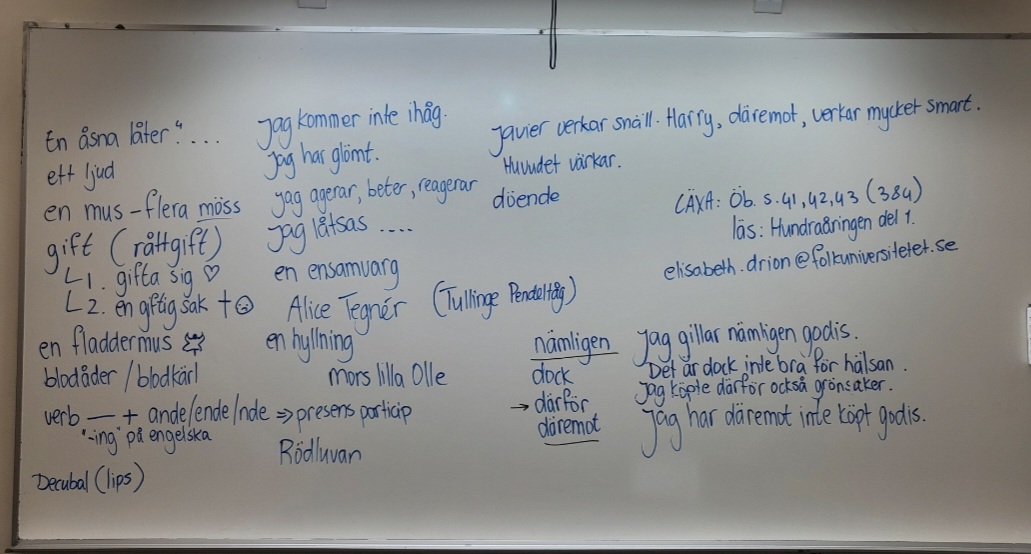 En åsna låter "....
ett ljud
en mus – flera möss
gift (råttgift)
↳1. gifta sig ♡
↳2. en giftig sak †☹
en fladdermus
blodåder / blodkärl
verb — + ande/ende/nde ⇒ presens particip
"-ing" på engelska
Decubal (lips)
Jag kommer inte ihåg.
Jag har glömt.
Jag agerar, beter, reagerar
Jag låtsas ....
en ensamvarg
Alice Tegnér (Tullinge Pendeltåg)
en hyllning
mors lilla Olle
Rödluvan
Javier verkar snäll. Harry, däremot, verkar mycket smart.
Huvudet värkar.
döende
LÄXA: Öb. s. 41, 42, 43 (384)
läs: Hundraåringen del 1.
elisabeth.drion@folkuniversitetet.se
nämligen Jag gillar nämligen godis.
dock Det är dock inte bra för hälsan.
→ därför Jag köpte därför också grönsaker.
däremot Jag har däremot inte köpt godis.